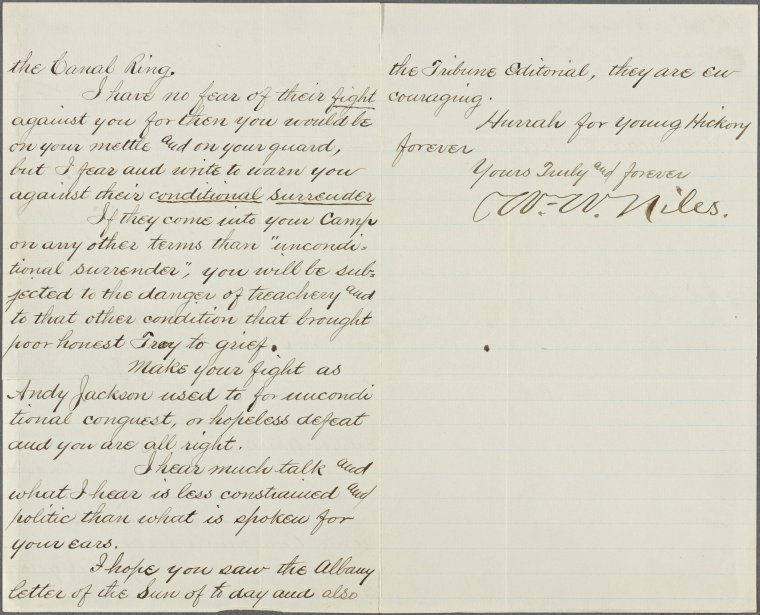 the Canal Ring.
I have no fear of their fight
against you for then you would be
on your mettle and on your guard,
but I fear and write to warn you
against their conditional surrender
If they come into your Camp
on any other terms than "uncondi-
tional surrender", you will be sub-
jected to the danger of treachery and
to that other condition that brought
poor honest Tray to grief.
Make your fight as
Andy Jackson used to for uncondi
tional conquest, or hopeless defeat
and you are all right.
I hear much talk and
what I hear is less constrained and
politic than what is spoken for
your ears.
I hope you saw the Albany
letter of the Sun of to day and also
the Tribune Editorial, they are en
couraging.
Hurrah for Young Hickory
forever
Yours Truly and forever
W. W. Niles.